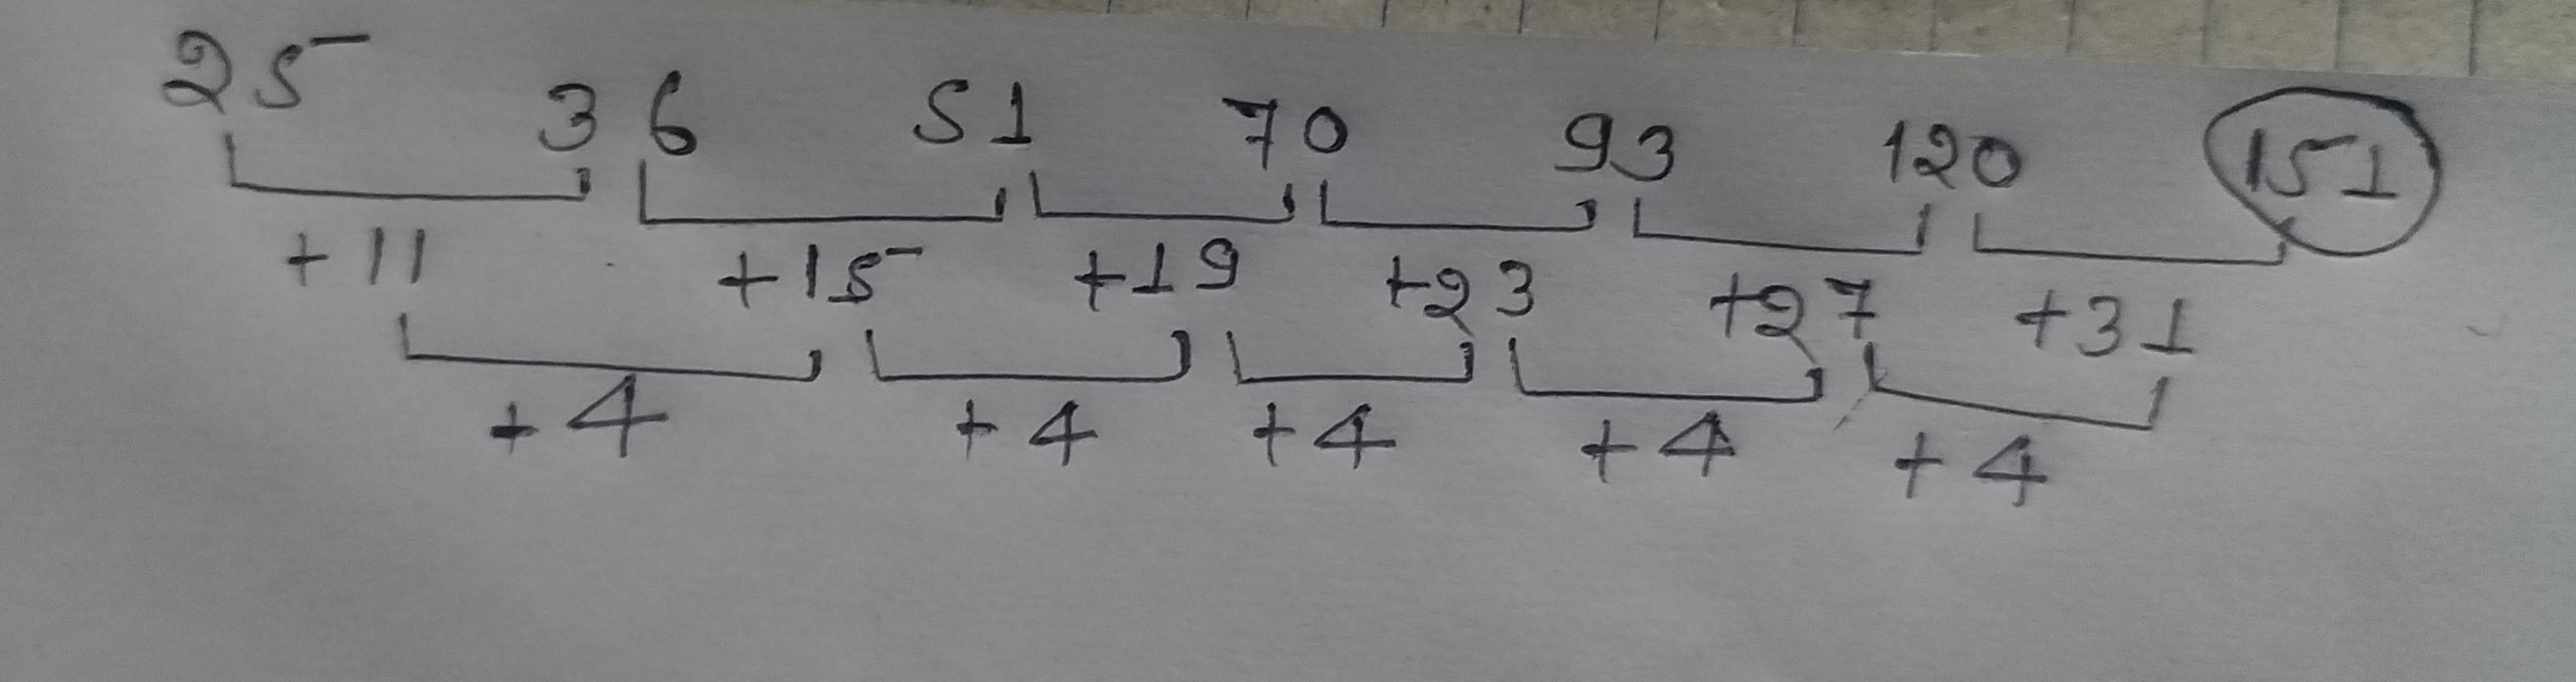 25 36 51 70 93 120 151
+11 +15 +19 +23 +27 +31
+4 +4 +4 +4 +4